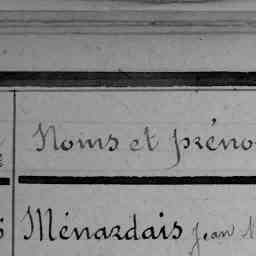 Noms et préno
Ménardais Jean